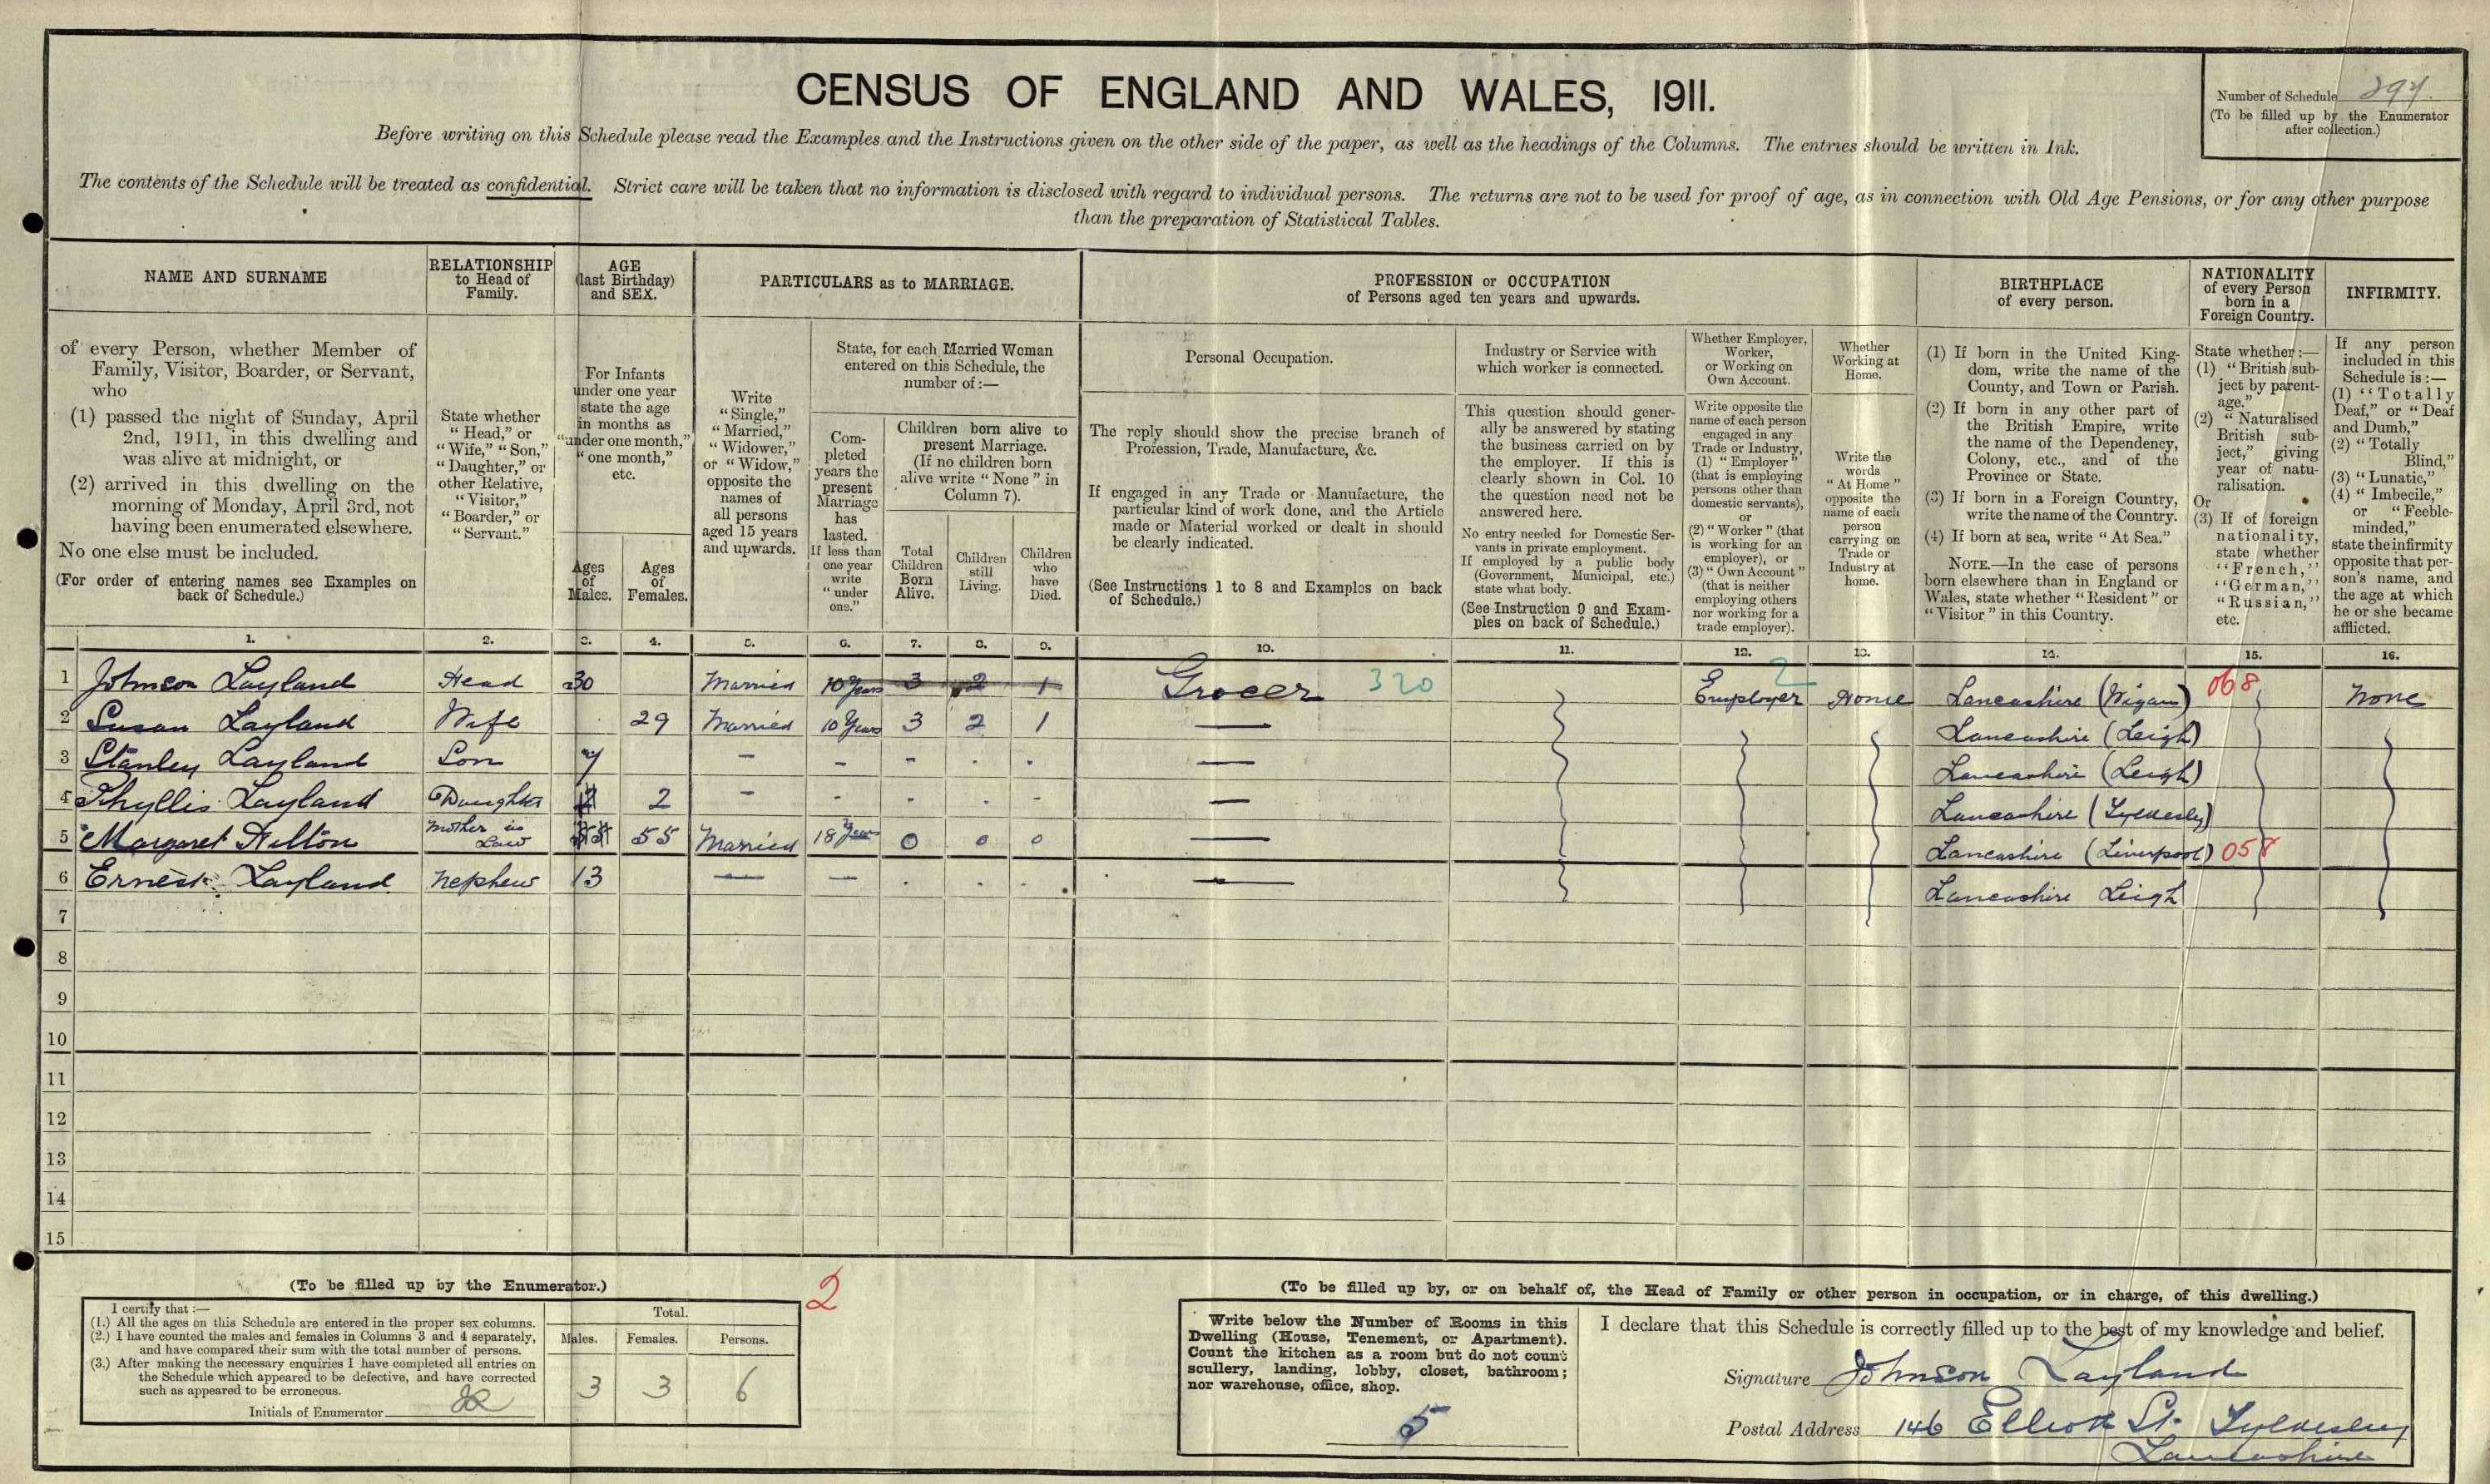 CENSUS OF ENGLAND AND WALES, 1911.
Number of Schedule 297.
(To be filled up by the Enumerator
after collection.)
Before writing on this Schedule please read the Examples and the Instructions given on the other side of the paper, as well as the headings of the Columns. The entries should be written in Ink.
The contents of the Schedule will be treated as confidential. Strict care will be taken that no information is disclosed with regard to individual persons. The returns are not to be used for proof of age, as in connection with Old Age Pensions, or for any other purpose
than the preparation of Statistical Tables.
NAME AND SURNAME
of every Person, whether Member of
Family, Visitor, Boarder, or Servant,
who
(1) passed the night of Sunday, April
2nd, 1911, in this dwelling and
was alive at midnight, or
(2) arrived in this dwelling on the
morning of Monday, April 3rd, not
having been enumerated elsewhere.
No one else must be included.
(For order of entering names see Examples on
back of Schedule.)
RELATIONSHIP
to Head of
Family.
State whether
"Head," or
"Wife," "Son,"
"Daughter," or
other Relative,
"Visitor,"
"Boarder," or
"Servant."
AGE
(last Birthday)
and SEX.
For Infants
under one year
state the age
in months as
"under one month,"
"one month,"
etc.
Ages
of
Males.
Ages
of
Females.
PARTICULARS as to MARRIAGE.
Write
"Single,"
"Married,"
"Widower,"
or "Widow,"
opposite the
names of
all persons
aged 15 years
and upwards.
State, for each Married Woman
entered on this Schedule, the
number of:—
Com-
pleted
years the
present
Marriage
has
lasted.
If less than
one year
write
"under
one."
Children born alive to
present Marriage.
(If no children born
alive write "None" in
Column 7).
Total
Children
Born
Alive.
Children
still
Living.
Children
who
have
Died.
PROFESSION or OCCUPATION
of Persons aged ten years and upwards.
Personal Occupation.
The reply should show the precise branch of
Profession, Trade, Manufacture, &c.
If engaged in any Trade or Manufacture, the
particular kind of work done, and the Article
made or Material worked or dealt in should
be clearly indicated.
(See Instructions 1 to 8 and Examples on back
of Schedule.)
Industry or Service with
which worker is connected.
This question should gener-
ally be answered by stating
the business carried on by
the employer. If this is
clearly shown in Col. 10
the question need not be
answered here.
No entry needed for Domestic Ser-
vants in private employment.
If employed by a public body
(Government, Municipal, etc.)
state what body.
(See Instruction 9 and Exam-
ples on back of Schedule.)
Whether Employer,
Worker,
or Working on
Own Account.
Write opposite the
name of each person
engaged in any
Trade or Industry,
(1) "Employer"
(that is employing
persons other than
domestic servants),
or
(2) "Worker" (that
is working for an
employer), or
(3) "Own Account"
(that is neither
employing others
nor working for a
trade employer).
Whether
Working at
Home.
Write the
words
"At Home"
opposite the
name of each
person
carrying on
Trade or
Industry at
home.
BIRTHPLACE
of every person.
(1) If born in the United King-
dom, write the name of the
County, and Town or Parish.
(2) If born in any other part of
the British Empire, write
the name of the Dependency,
Colony, etc., and of the
Province or State.
(3) If born in a Foreign Country,
write the name of the Country.
(4) If born at sea, write "At Sea."
NOTE.—In the case of persons
born elsewhere than in England or
Wales, state whether "Resident" or
"Visitor" in this Country.
NATIONALITY
of every Person
born in a
Foreign Country.
State whether:—
(1) "British sub-
ject by parent-
age."
(2) "Naturalised
British sub-
ject," giving
year of natu-
ralisation.
Or
(3) If of foreign
nationality,
state whether
"French,"
"German,"
"Russian,"
etc.
INFIRMITY.
If any person
included in this
Schedule is:—
(1) "Totally
Deaf," or "Deaf
and Dumb,"
(2) "Totally
Blind,"
(3) "Lunatic,"
(4) "Imbecile,"
or "Feeble-
minded,"
state the infirmity
opposite that per-
son's name, and
the age at which
he or she became
afflicted.
1. 2. 3. 4. 5. 6. 7. 8. 9. 10. 11. 12. 13. 14. 15. 16.
1 Johnson Layland Head 30 Married 10 Years 3 2 1 Grocer 320 Employer 2 Home Lancashire (Wigan) 068 None
2 Susan Layland Wife 29 Married 10 Years 3 2 1 — Lancashire (Leigh)
3 Stanley Layland Son 7 – – – . . — Lancashire (Leigh)
4 Phyllis Layland Daughter 2 – - - . - — Lancashire (Tyldesley)
5 Margaret Hilton Mother in Law 55 Married 18 Years 0 0 0 — Lancashire (Liverpool) 058
6 Ernest Layland nephew 13 — — . . . — Lancashire Leigh
7
8
9
10
11
12
13
14
15
(To be filled up by the Enumerator.)
I certify that:—
(1.) All the ages on this Schedule are entered in the proper sex columns.
(2.) I have counted the males and females in Columns 3 and 4 separately,
and have compared their sum with the total number of persons.
(3.) After making the necessary enquiries I have completed all entries on
the Schedule which appeared to be defective, and have corrected
such as appeared to be erroneous.
Initials of Enumerator
Total.
Males. Females. Persons.
3 3 6
2
(To be filled up by, or on behalf of, the Head of Family or other person in occupation, or in charge, of this dwelling.)
Write below the Number of Rooms in this
Dwelling (House, Tenement, or Apartment).
Count the kitchen as a room but do not count
scullery, landing, lobby, closet, bathroom;
nor warehouse, office, shop.
5
I declare that this Schedule is correctly filled up to the best of my knowledge and belief.
Signature Johnson Layland
Postal Address 146 Elliott St. Tyldesley
Lancashire